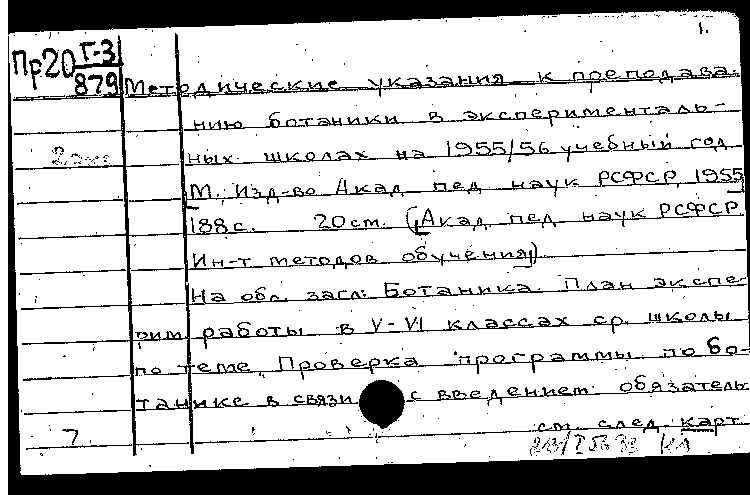 1.
Пр20 Г-3
879
Методические указания к преподава-
нию ботаники в эксперименталь-
ных школах на 1955/56 учебный год
М., Изд-во Акад. пед. наук РСФСР, 1955
188с. 20см. (Акад. пед. наук РСФСР.
Ин-т методов обучения)
На обл. загл: Ботаника. План экспе-
рим работы в V-VI классах ср. школы
по теме „Проверка программы по бо-
танике в связи с введением обязатель
см. след. карт
7